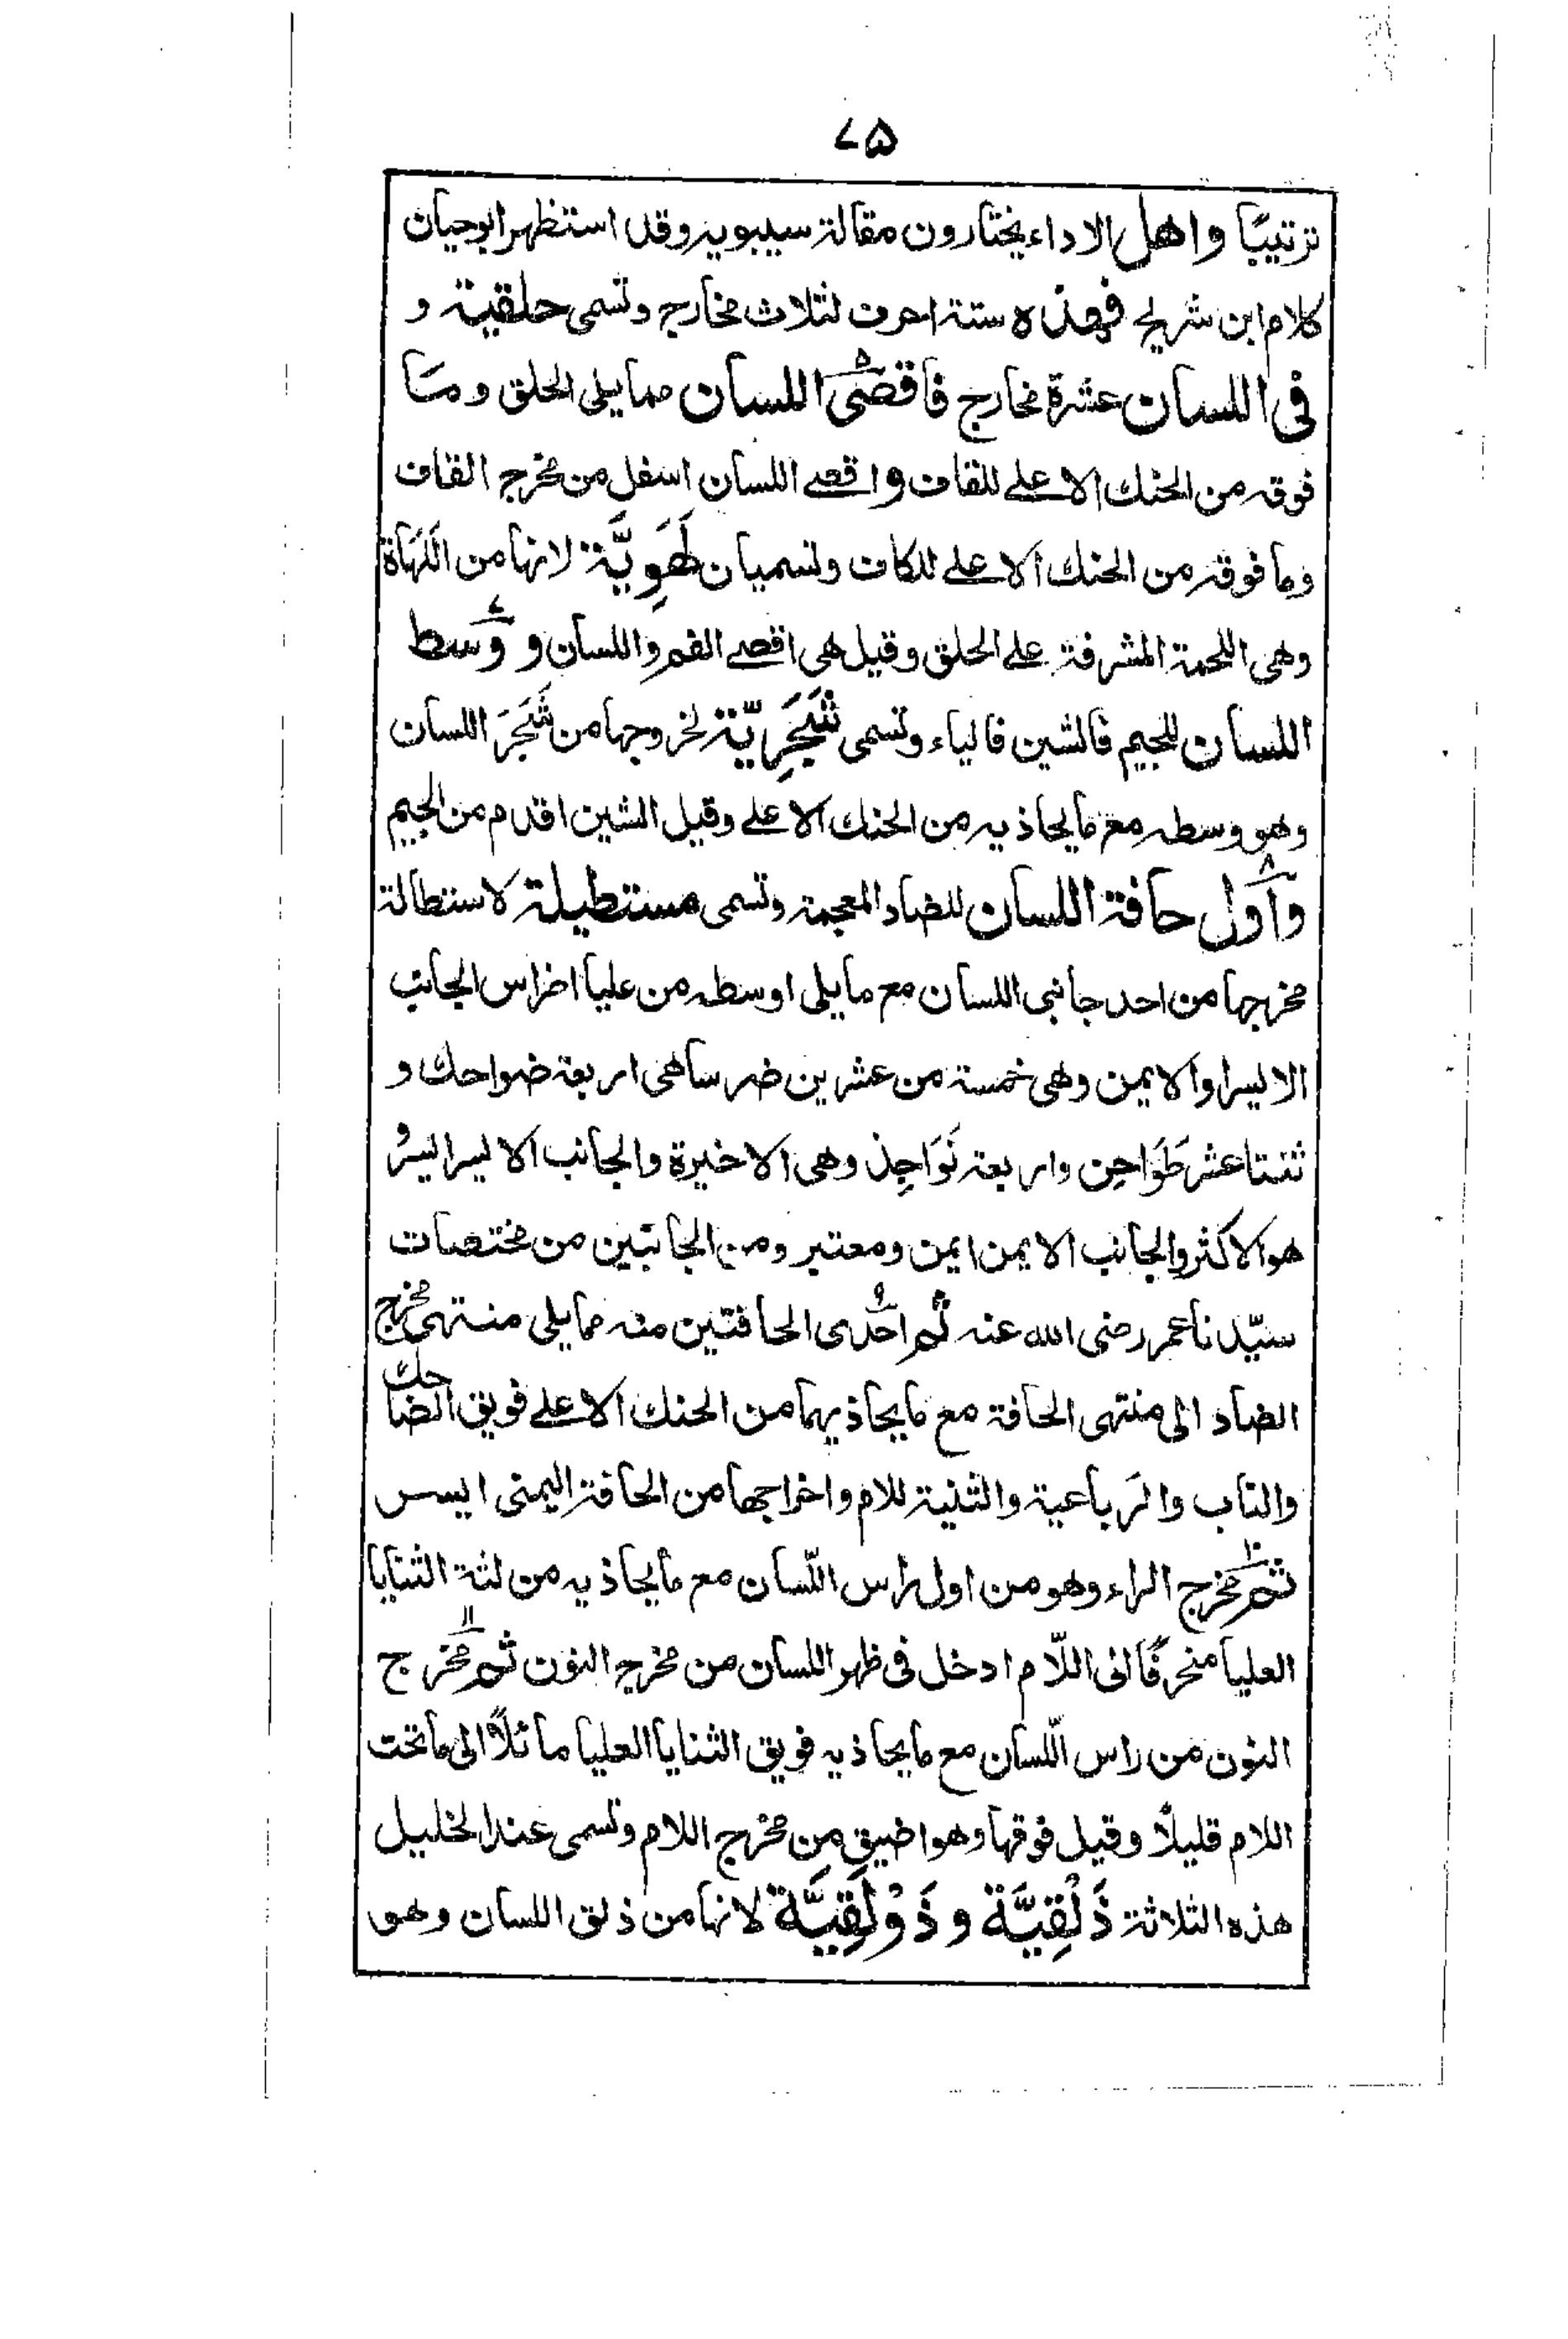 ٧٥
ترتيبًا واهل الاداء يختارون مقالة سيبويه وقد استظهر ابوحيان
كلام ابن شريح فهذه ستة احرف لثلاث مخارج وتسمى حلقية و
فى اللسان عشرة مخارج فاقصى اللسان مما يلى الحلق وما
فوقه من الحنك الاعلے للقاف واقصے اللسان اسفل من مخرج القاف
وما فوقه من الحنك الاعلے للكاف وتسميان لَهَوِيَّة لانها من اللَهَاة
وهى اللحمة المشرفة علے الحلق وقيل هى اقصے الفم واللسان و وسط
اللسان للجيم فالشين فالياء وتسمى شَجَرِيّة لخروجها من شَجَرَ اللسان
وهو وسطه مع مايحاذيه من الحنك الاعلے وقيل الشين اقدم من الجيم
وأول حافة اللسان للضاد المعجمة وتسمى مستطيلة لاستطالة
مخرجها من احد جانبى اللسان مع مايلى اوسطه من عليا اضراس الجانب
الايسر اوالايمن وهى خمسة من عشرين ضرسا هى اربعة ضواحك و
ثنتا عشر طَوَاحِن واربعة نَوَاجِذ وهى الاخيرة والجانب الايسر ايسرُ و
هوالاكثر والجانب الايمن ايمن ومعتبر ومن الجانبين من مختصات
سيّدنا عمر رضى الله عنه ثم احدى الحافتين منه مما يلى منتهى مخرج
الضاد الى منتهى الحافة مع مايحاذيهما من الحنك الاعلے فويق الضاحك
والناب والرَباعية والثنية للام واخراجها من الحافة اليمنى ايسر
ثم مخرج الراء وهو من اول رأس اللّسان مع مايحاذيه من لثة الثنايا
العليا منحرفًا الى اللّام ادخل فى ظهر اللسان من مخرج النون ثم مخرج
النون من راس اللّسان مع مايحاذيه فويق الثنايا العليا مائلًا الى ماتحت
اللام قليلًا وقيل فوقها وهو اضيق من مخرج اللام وتسمى عند الخليل
هذه الثلاثة ذَلْقِيَّة و ذَوْلَقِيَّة لانها من ذلق اللسان وهو